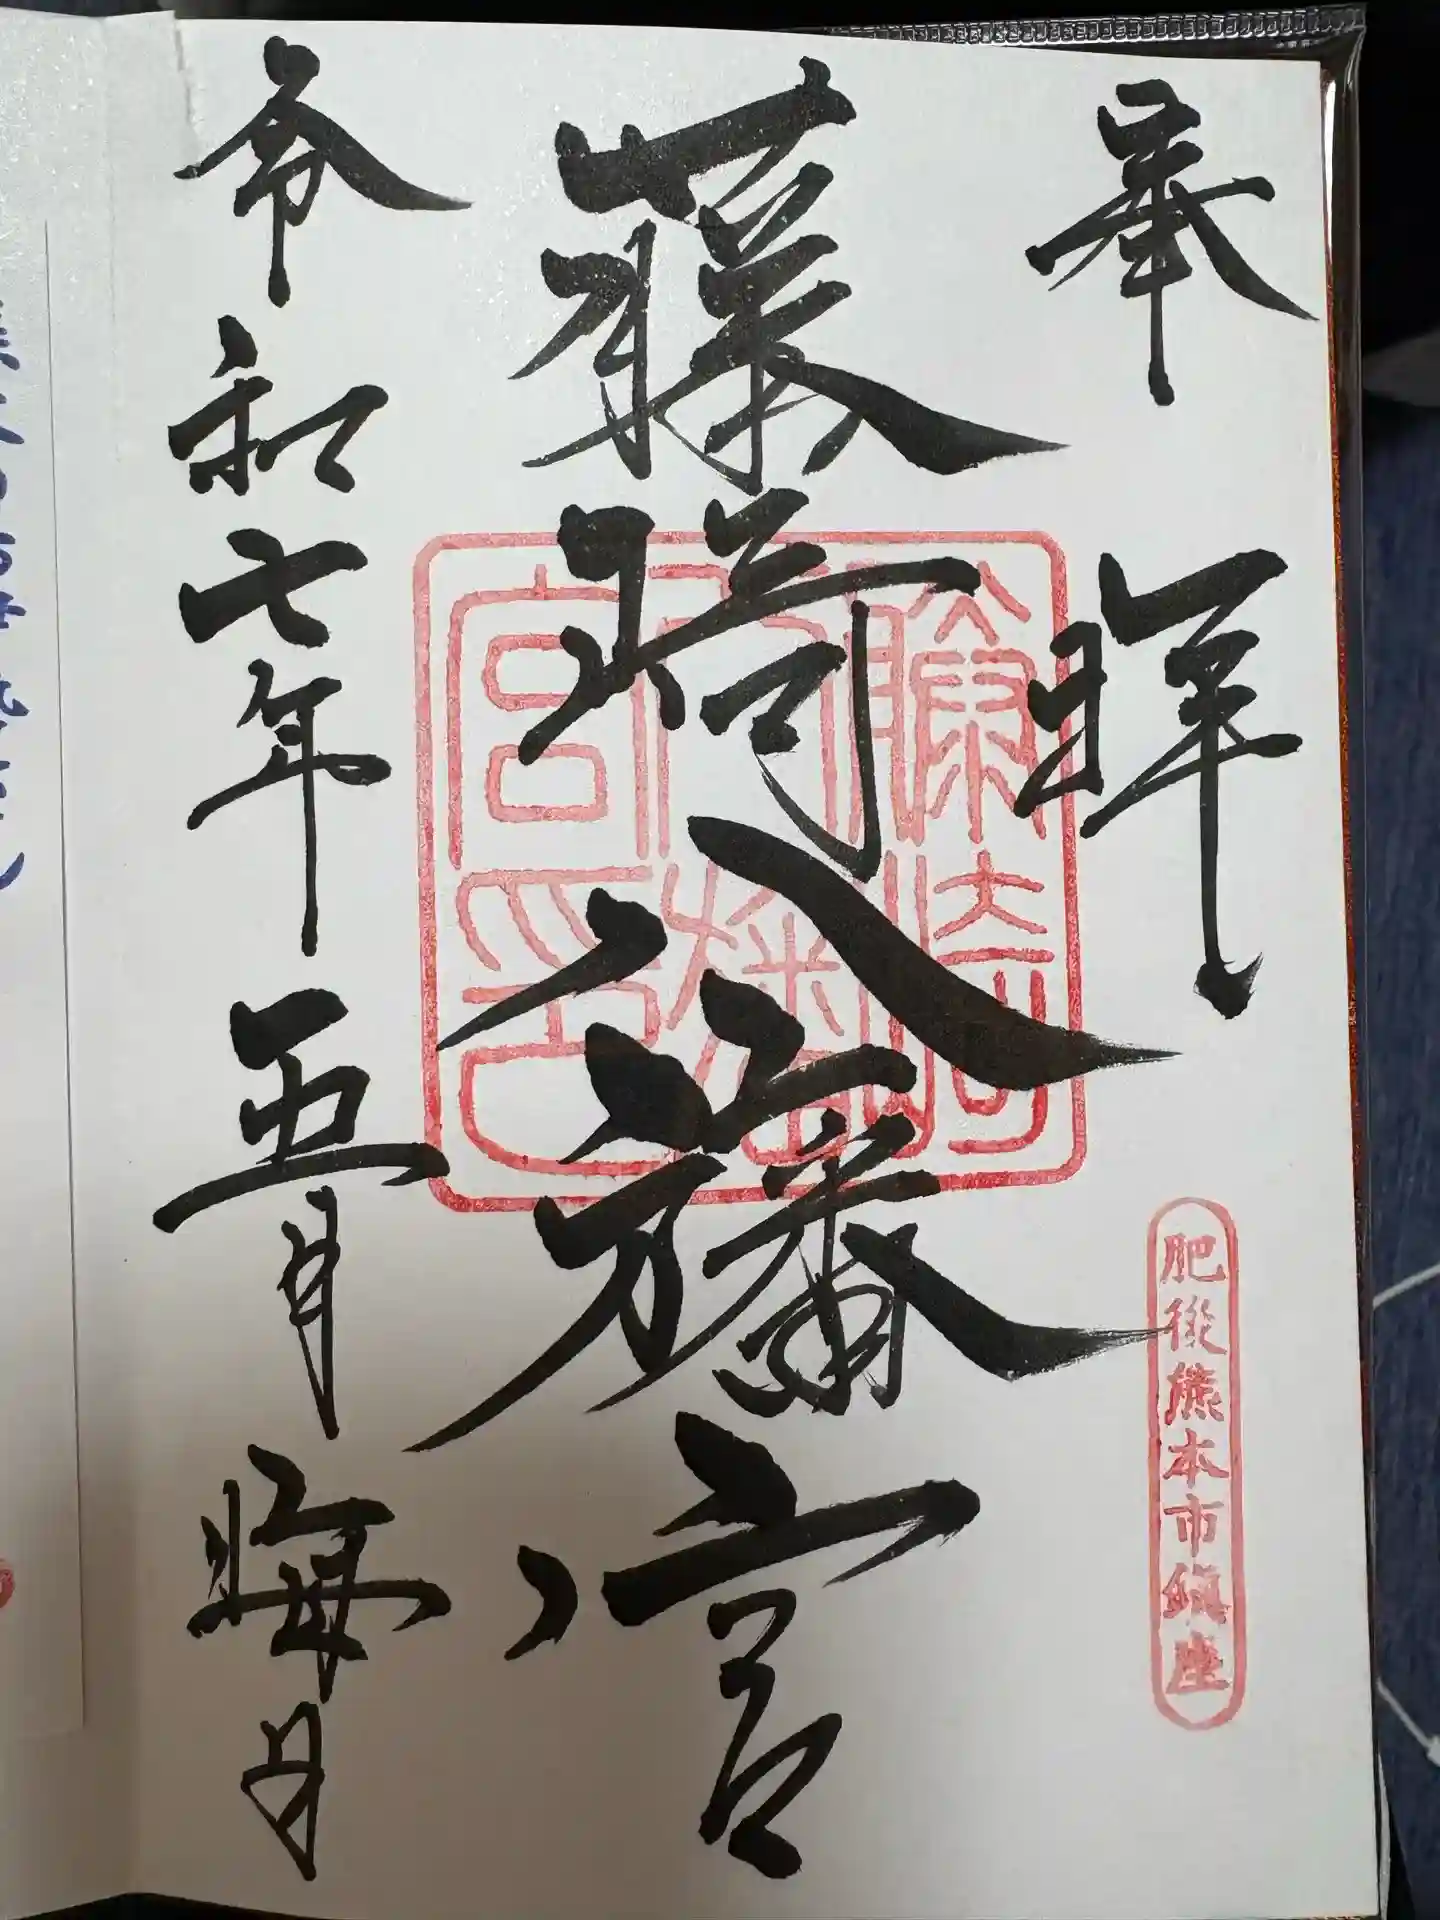 奉拝
肥後熊本市鎮座
藤崎八旛宮
藤崎八幡宮印
令和七年五月晦日